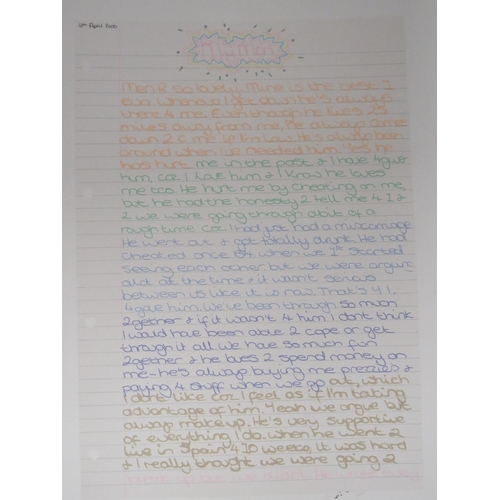 11th April 2000
My Man
Men R so lovely. Mine is the best I
eva. Wheneva I get down he's always
there 4 me. Even though he lives 23
miles away from me, he always comes
down 2 c me if I'm low. He's always been
around when I've needed him. Yes he
has hurt me in the past & I have 4give
him, coz I luv him & I know he loves
me too. He hurt me by cheating on me,
but he had the honesty 2 tell me & I &
2 we were going through abit of a
rough time coz I had just had a miscarriage
He went out & got totally drunk. He had
cheated once b4 when we 1st started
seeing each other but we were arguin
alot at the time & it wasn't serious
between us like it is now. That's y I
4gave him. We've been through so much
2gether & if it wasn't 4 him I dont think
I would have been able 2 cope or get
through it all. We have so much fun
2gether & he loves 2 spend money on
me - he's always buying me prezzies &
paying 4 stuff when we go out, which
I dont like coz I feel as if I'm taking
advantage of him. Yeah we argue but
always make up. He's very supportive
of everything I do. When he went 2
live in Spain 4 10 weeks, it was hard
& I really thought we were going 2